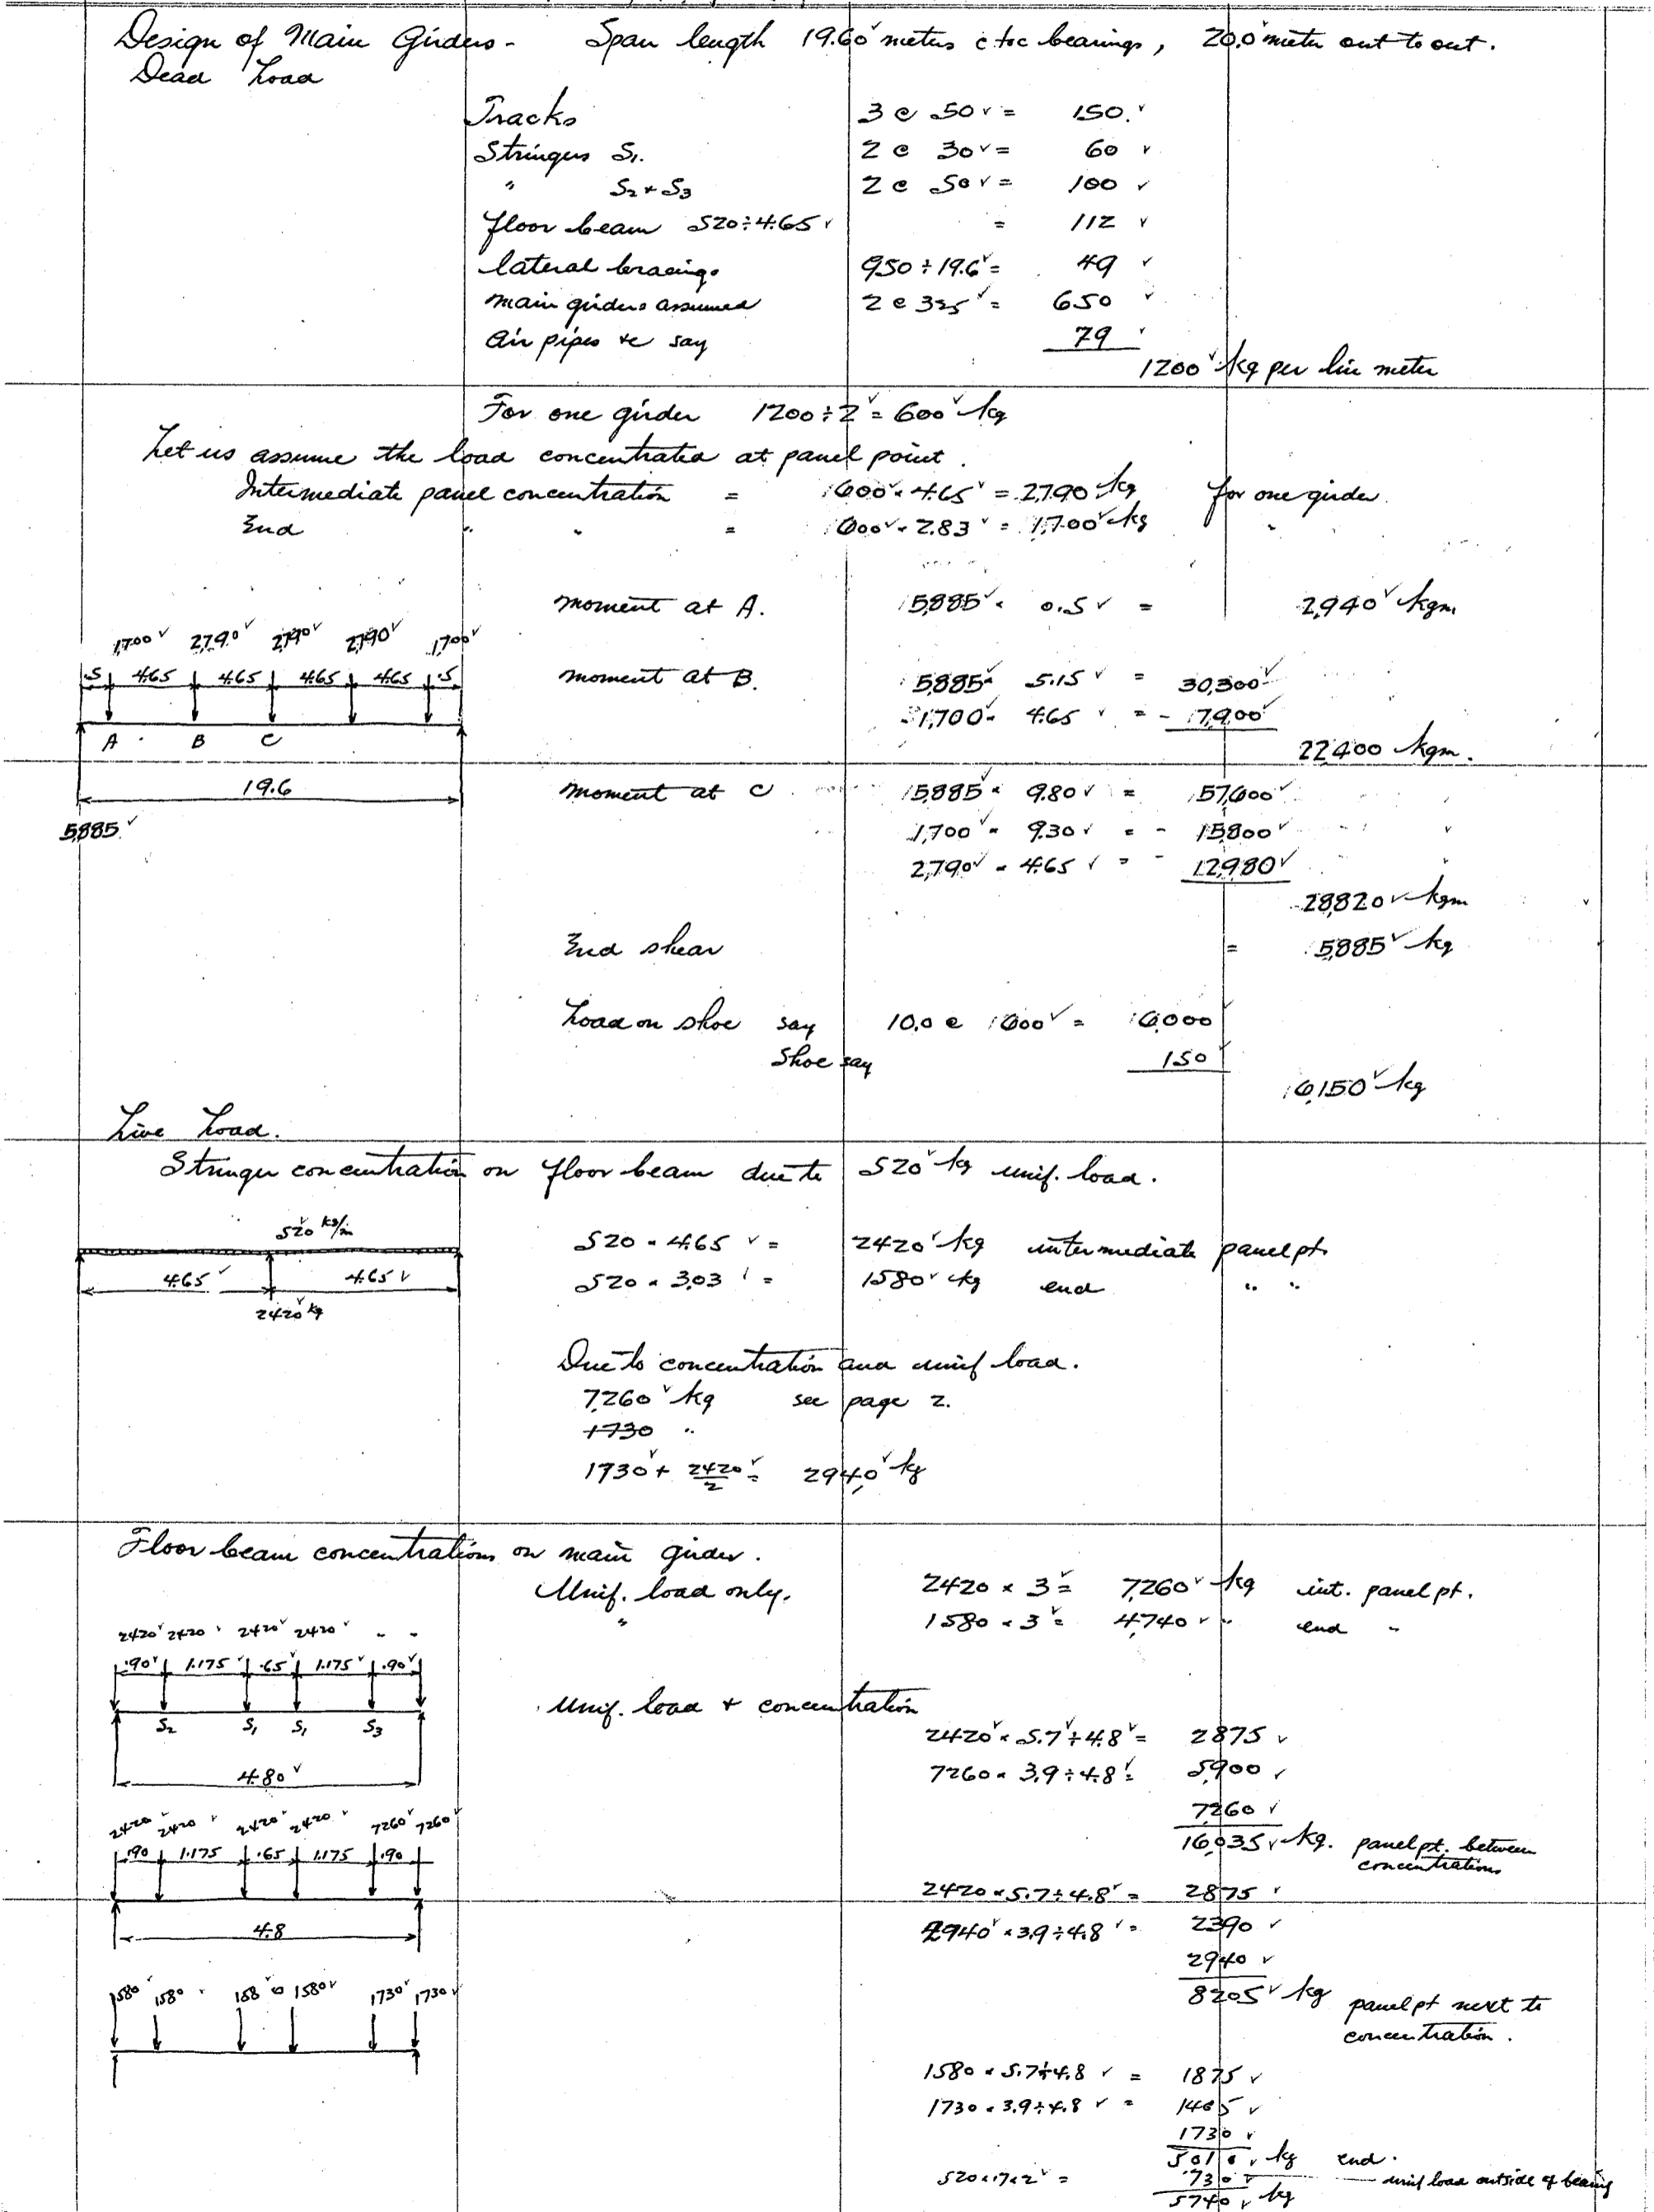 Design of Main Girders - Span length 19.60 meters c to c bearings, 20.0 meter out to out.
Dead Load
Tracks 3 @ 50 = 150.
Stringers S1. 2 @ 30 = 60
" S2 + S3 2 @ 50 = 100
floor beam 520÷4.65 = 112
lateral bracings 950÷19.6 = 49
main girders assumed 2 @ 325 = 650
Air pipes &c say 79
1200 kg per lin meter
For one girder 1200÷2 = 600 kg
Let us assume the load concentrated at panel point.
Intermediate panel concentration = 600 × 4.65 = 2,790 kg for one girder.
End " " = 600 × 2.83 = 1,700 kg "
moment at A. 5,885 × 0.5 = 2,940 kgm
1,700 2,790 2,790 2,790 1,700
.5 4.65 4.65 4.65 4.65 .5
A B C
19.6
5,885
moment at B. 5,885 × 5.15 = 30,300
- 1,700 × 4.65 = - 7,900
22,400 kgm.
moment at C 5,885 × 9.80 = 57,600
1,700 × 9.30 = - 15,800
2,790 × 4.65 = - 12,980
28,820 kgm
End shear = 5,885 kg
Load on shoe say 10.0 @ 600 = 6,000
Shoe say 150
6,150 kg
Live Load.
Stringer concentration on floor beam due to 520 kg unif. load.
520 kg/m
4.65 4.65
2420 kg
520 × 4.65 = 2420 kg intermediate panel pt.
520 × 3.03 = 1580 kg end " "
Due to concentration and unif load.
7,260 kg see page 2.
1730 "
1730 + 2420/2 = 2940 kg
Floor beam concentrations on main girder.
Unif. load only. 2420 × 3 = 7,260 kg int. panel pt.
" 1580 × 3 = 4,740 " end "
2420 2420 2420 2420 " "
.90 1.175 .65 1.175 .90
S2 S1 S1 S3
4.80
Unif. load + concentration
2420 × 5.7÷4.8 = 2875
7260 × 3.9÷4.8 = 5,900
7,260
16,035 kg. panel pt. between
concentrations
2420 2420 2420 2420 7260 7260
.90 1.175 .65 1.175 .90
4.8
2420 × 5.7÷4.8 = 2875
2940 × 3.9÷4.8 = 2390
2940
8205 kg panel pt next to
concentration.
1580 1580 1580 1580 1730 1730
1580 × 5.7÷4.8 = 1875
1730 × 3.9÷4.8 = 1405
1730
5010 kg end.
520×.7×2 = 730 unif load outside of bearing
5740 kg